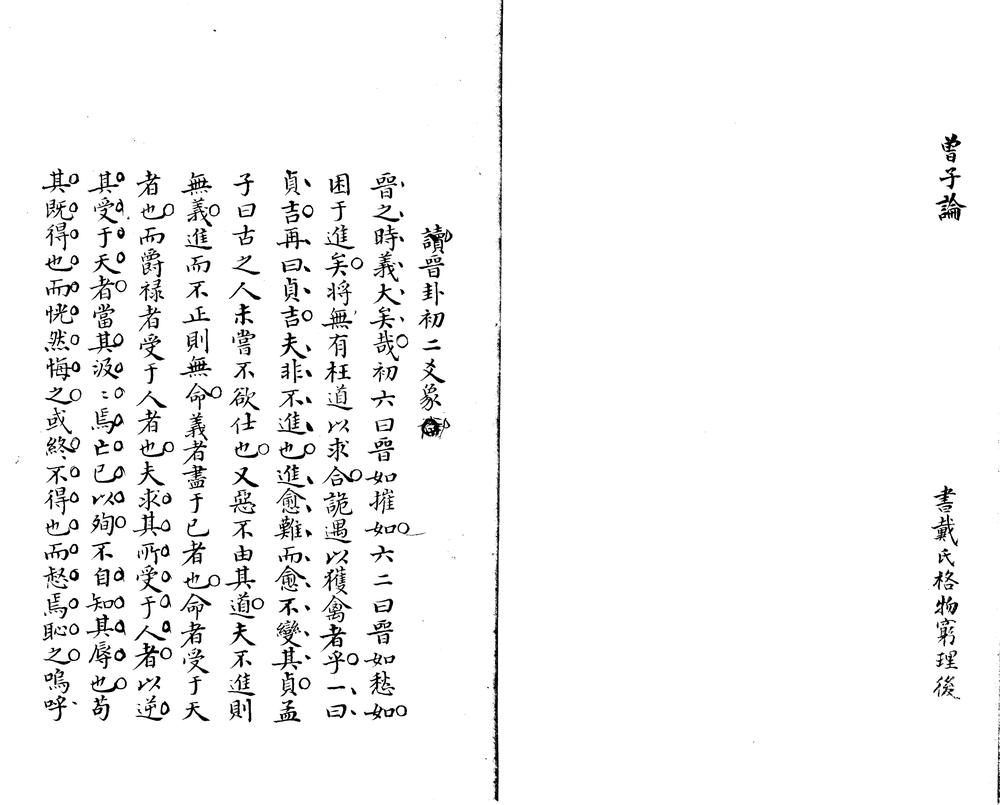 曾子論
書戴氏格物窮理後
讀晉卦初二爻象
晉之時義大矣哉初六曰晉如摧如六二曰晉如愁如
困于進矣將無有枉道以求合詭遇以獲禽者乎一曰
貞吉再曰貞吉夫非不進也進愈難而愈不變其貞孟
子曰古之人未嘗不欲仕也又惡不由其道夫不進則
無義進而不正則無命義者盡于已者也命者受于天
者也而爵祿者受于人者也夫求其所受于人者以逆
其受于天者當其汲〻焉亡已以殉不自知其辱也苟
其既得也而恍然悔之或終不得也而慭焉恥之嗚呼